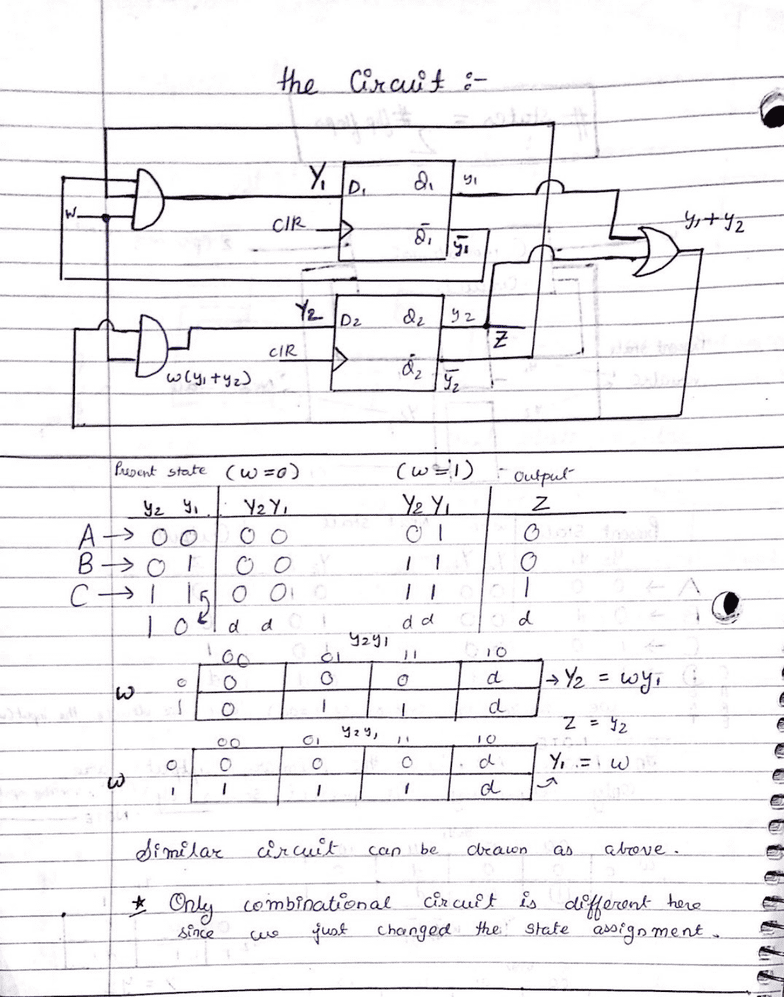 the Circuit :-
Y₁ D₁ Q₁ y₁
w
ClR Q̄₁ ȳ₁
y₁ + y₂
Y₂ D₂ Q₂ y₂
Z
ClR Q̄₂ ȳ₂
w(y₁+y₂)
Present state (w=0) (w=1) Output
y₂ y₁ Y₂ Y₁ Y₂ Y₁ Z
A → 0 0 0 0 0 1 0
B → 0 1 0 0 1 1 0
C → 1 1 0 0 1 1 1
1 0 d d d d d
y₂y₁
00 01 11 10
w 0 0 0 0 d → Y₂ = wy₁
1 0 1 1 d
Z = y₂
y₂y₁
00 01 11 10
0 0 0 0 d Y₁ = w
w 1 1 1 1 d
Similar circuit can be drawn as above.
* Only combinational circuit is different here
since we just changed the state assignment.